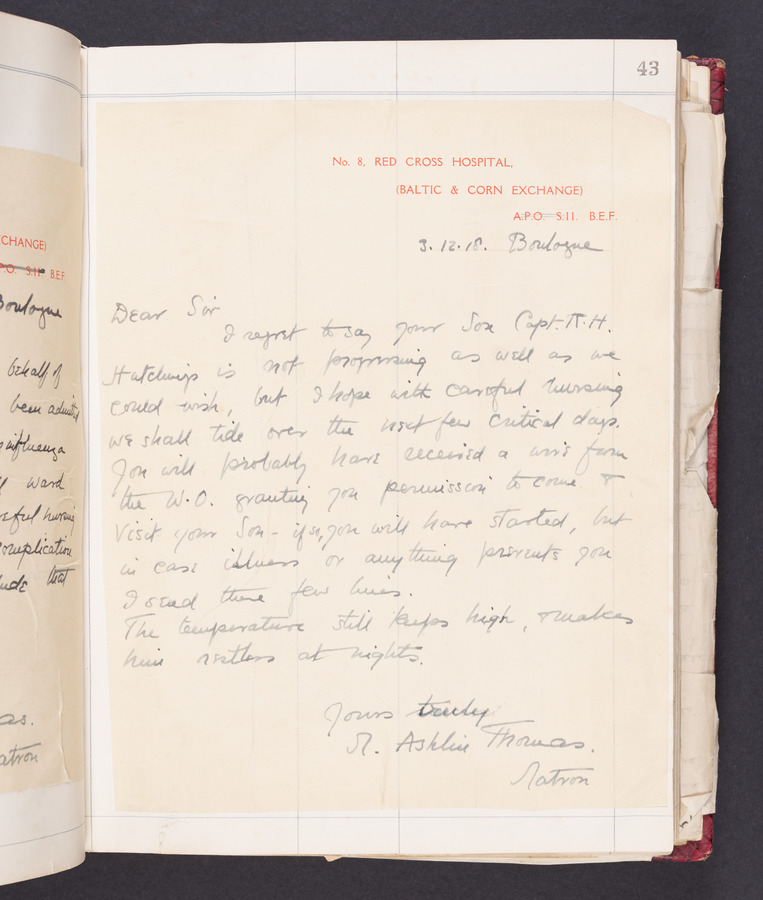 43
No. 8, RED CROSS HOSPITAL,
(BALTIC & CORN EXCHANGE)
A.P.O. S.11. B.E.F.
3.12.18. Boulogne
Dear Sir
I regret to say your Son Capt. R.H.
Hutchings is not progressing as well as we
could wish, but I hope with careful nursing
we shall tide over the next few critical days.
You will probably have received a wire from
the W.O. granting you permission to come &
visit your Son - if so, you will have started, but
in case illness or anything prevents you
I send these few lines.
The temperature still keeps high, & makes
him restless at nights.
Yours truly
M. Ashlin Thomas.
Matron
CHANGE)
P.O. S.11 B.E.F.
Boulogne
behalf of
been admitted
influenza
ward
careful nursing
complication
that
as.
atron